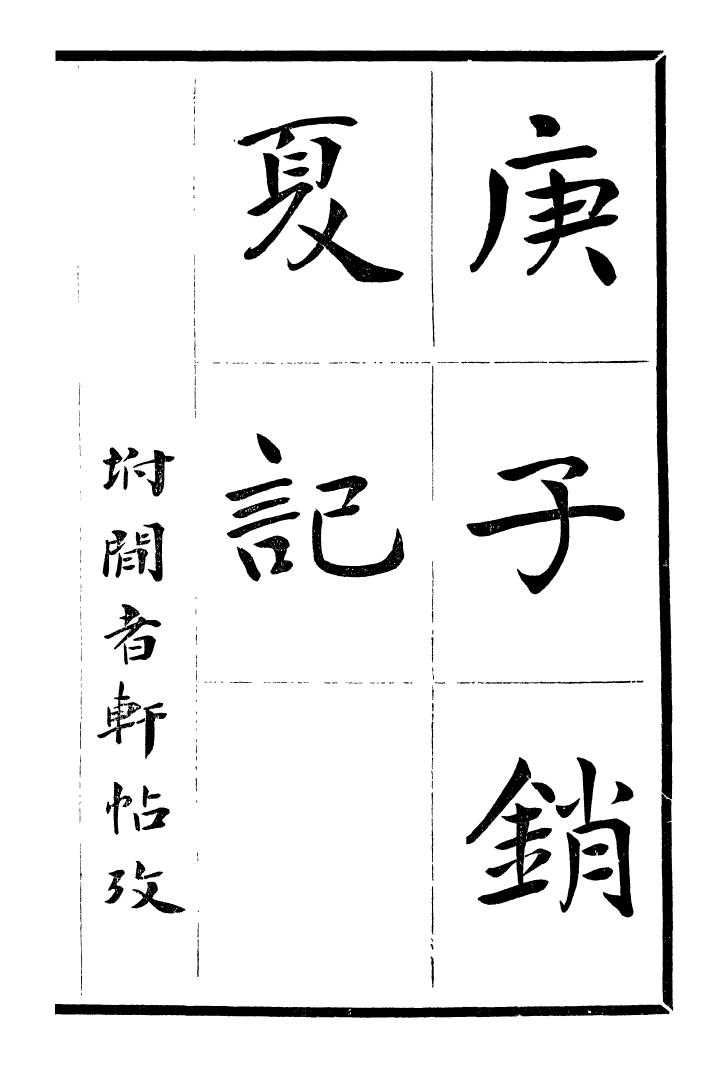 庚子銷
夏記
坿閒者軒帖攷